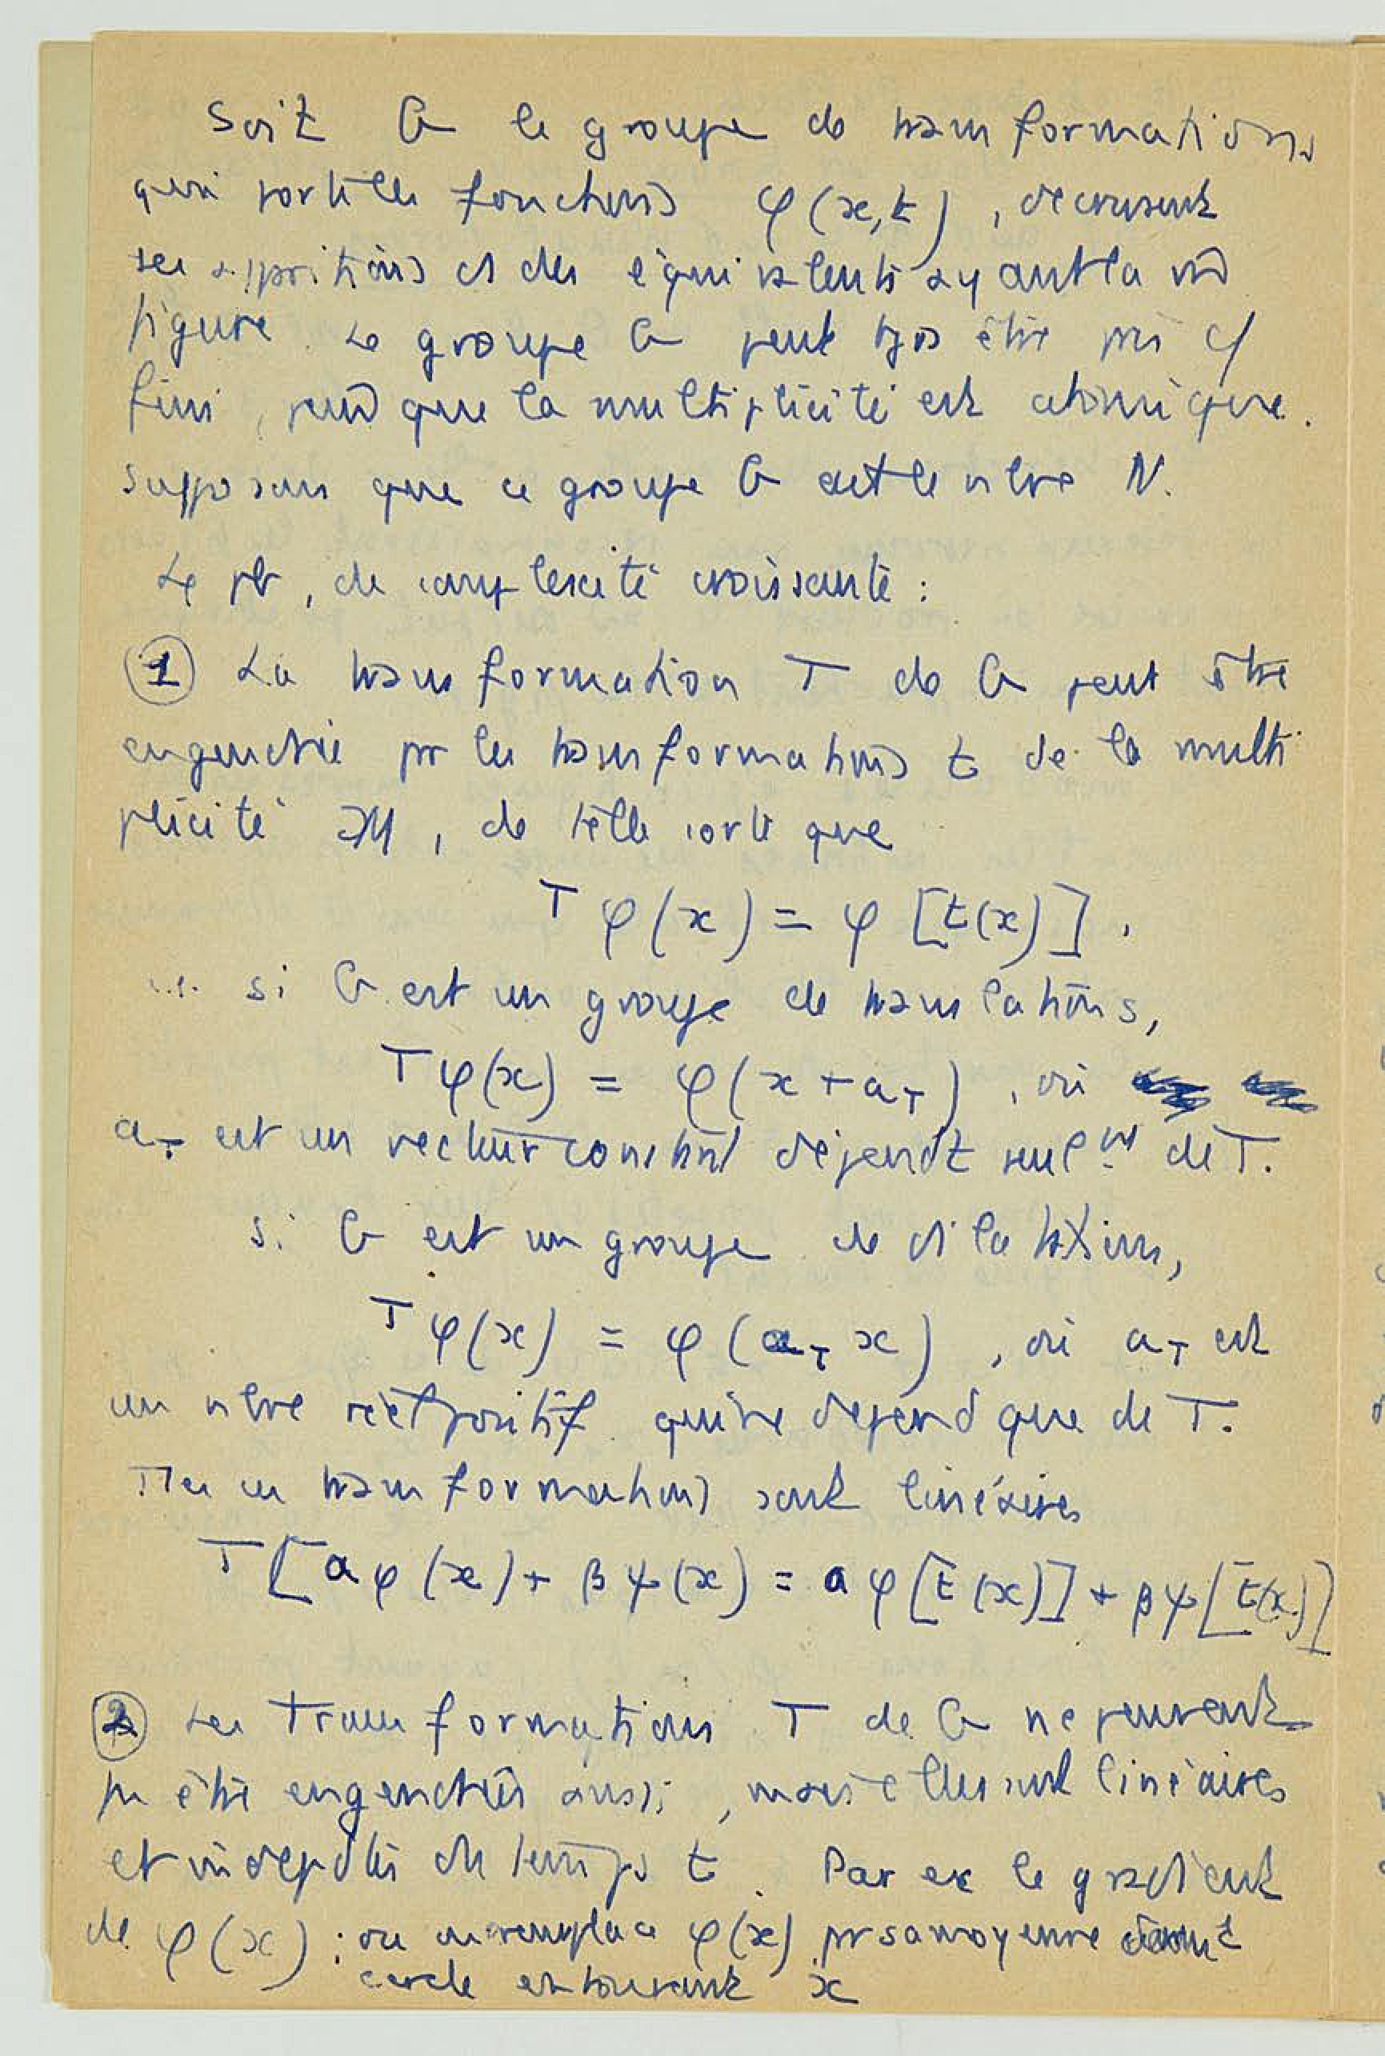 Soit G le groupe de transformations
qui sur les fonctions φ(x,t), décrivent
les apparitions et des équivalents ayant la m̄
figure. Le groupe G peut tjrs être pris cf
fini, que la multiplicité est atomique.
Supposons que ce groupe G ait le nbre N.
Le pb, de complexité croissante :
① La transformation T de G peut être
engendrée pr les transformations t de la multi
plicité M, de telle sorte que
T φ(x) = φ[t(x)].
si G est un groupe de translations,
Tφ(x) = φ(x + a_T), où
a_T est un vecteur constant dépendt seulmt de T.
Si G est un groupe de dilatations,
Tφ(x) = φ(a_T x), où a_T est
un nbre réel positif qui ne dépend que de T.
Ttes ces transformations sont linéaires
T[aφ(x) + βψ(x) = aφ[t(x)] + βψ[t(x)]
② Les Transformations T de G ne peuvent
pu être engendrées aussi, mais elles sont linéaires
et indepdtes du temps t. Par ex le gradient
de φ(x) ; ou on remplace φ(x) pr sa moyenne
cercle entourant x